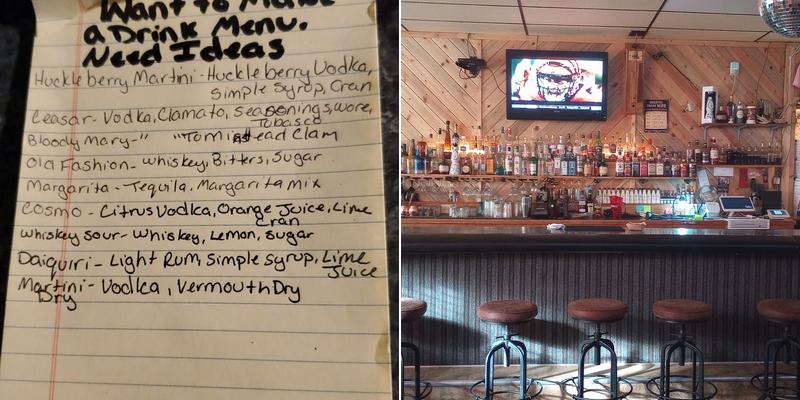 Want to Make
a Drink Menu.
Need Ideas
Huckleberry Martini - Huckleberry Vodka,
Simple Syrup, Cran
Ceasar - Vodka, Clamato, Seasonings, Wore,
Tobasco
Bloody Mary - " "Tom instead Clam
Old Fashion - Whiskey, Bitters, Sugar
Margarita - Tequila, Margarita Mix
Cosmo - Citrus Vodka, Orange Juice, Lime
Cran
Whiskey Sour - Whiskey, Lemon, Sugar
Daiquiri - Light Rum, Simple Syrup, Lime
Juice
Martini - Vodka, Vermouth Dry
Dry